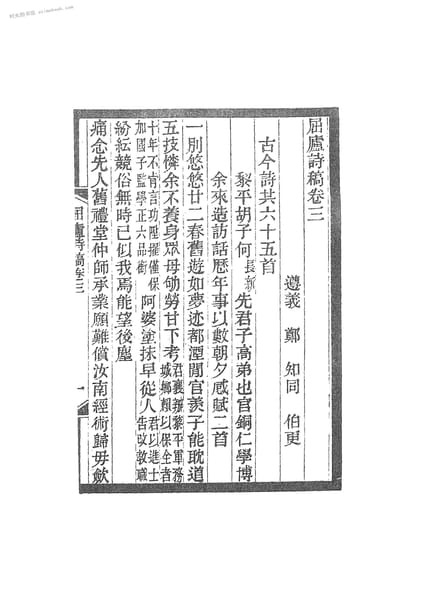 屈廬詩稿卷三
遵義 鄭 知同 伯更
古今詩共六十五首
黎平胡子何長新先君子高弟也官銅仁學博
余來造訪話歷年事以數朝夕感賦二首
一別悠悠廿二春舊遊如夢迹都湮閒官羨子能耽道
五技憐余不養身眾毋劬勞甘下考君襄辦黎平軍務城鄉賴以保全者
十年不肯言功陞擢僅保加國子監學正六品銜阿婆塗抹早從人君以進士告改教職
紛紜競俗無時已似我焉能望後塵
痛念先人舊禮堂仲師承業願難償汝南經術歸毋斂
屈廬詩稿卷三
一